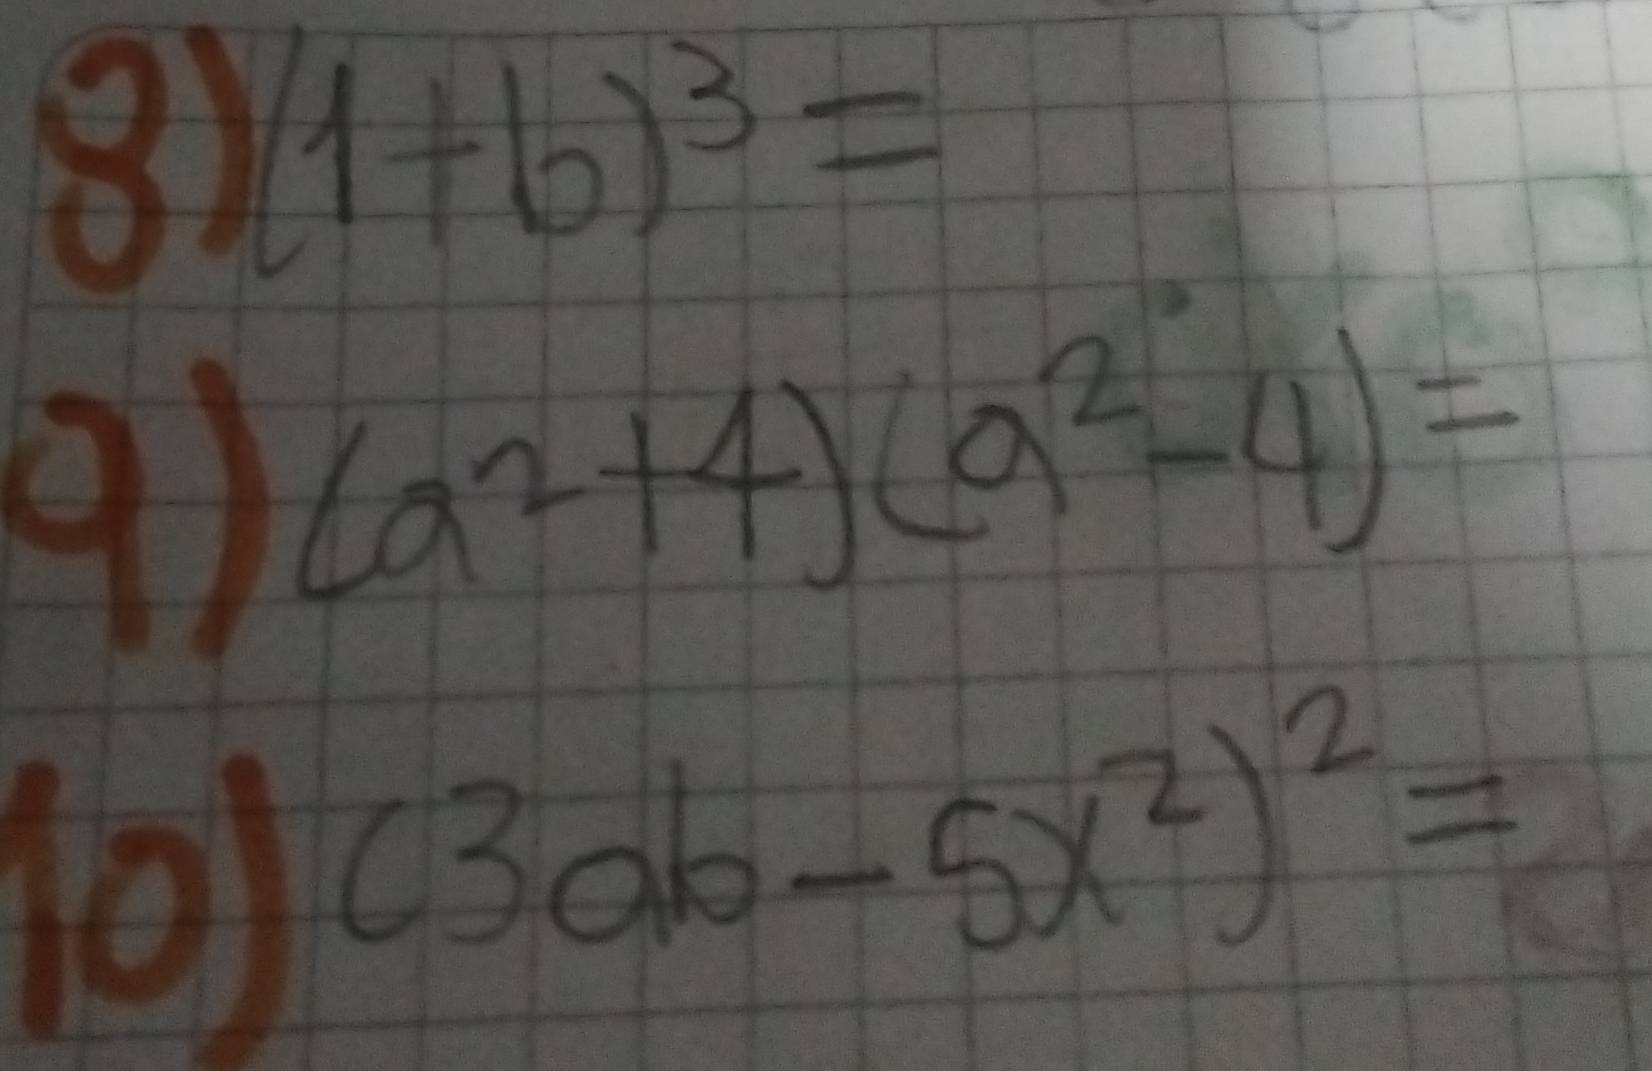 8) (1+b)³=
9) (a²+4)(a²-4)=
10) (3ab-5x²)²=